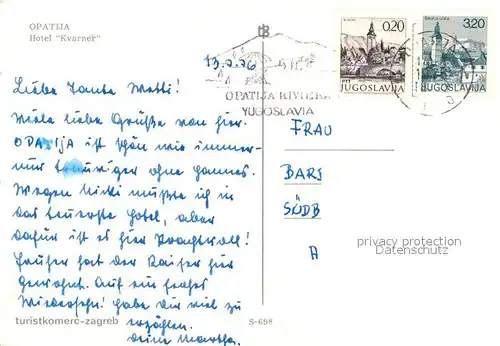 OPATIJA
Hotel "Kvarner"
13.2.76
Liebe Tante Metti!
Viele liebe Grüße von hier.
OPATIJA ist schön wie immer -
nur trauriger ohne Hannes.
Wegen Nicki mußte ich in
das teuerste Hotel, aber
dafür ist es hier Prachtvoll!
Früher hat der Kaiser hier
gewohnt. Auf ein frohes
Wiedersehn! habe Dir viel zu
erzählen.
Deine Martha.
turistkomerc-zagreb
S-698
OPATIJA RIVIERA
YUGOSLAVIA
0,20
PTT
JUGOSLAVIJA
3,20
JUGOSLAVIJA
FRAU
BARS
SÜDB
A
privacy protection
Datenschutz